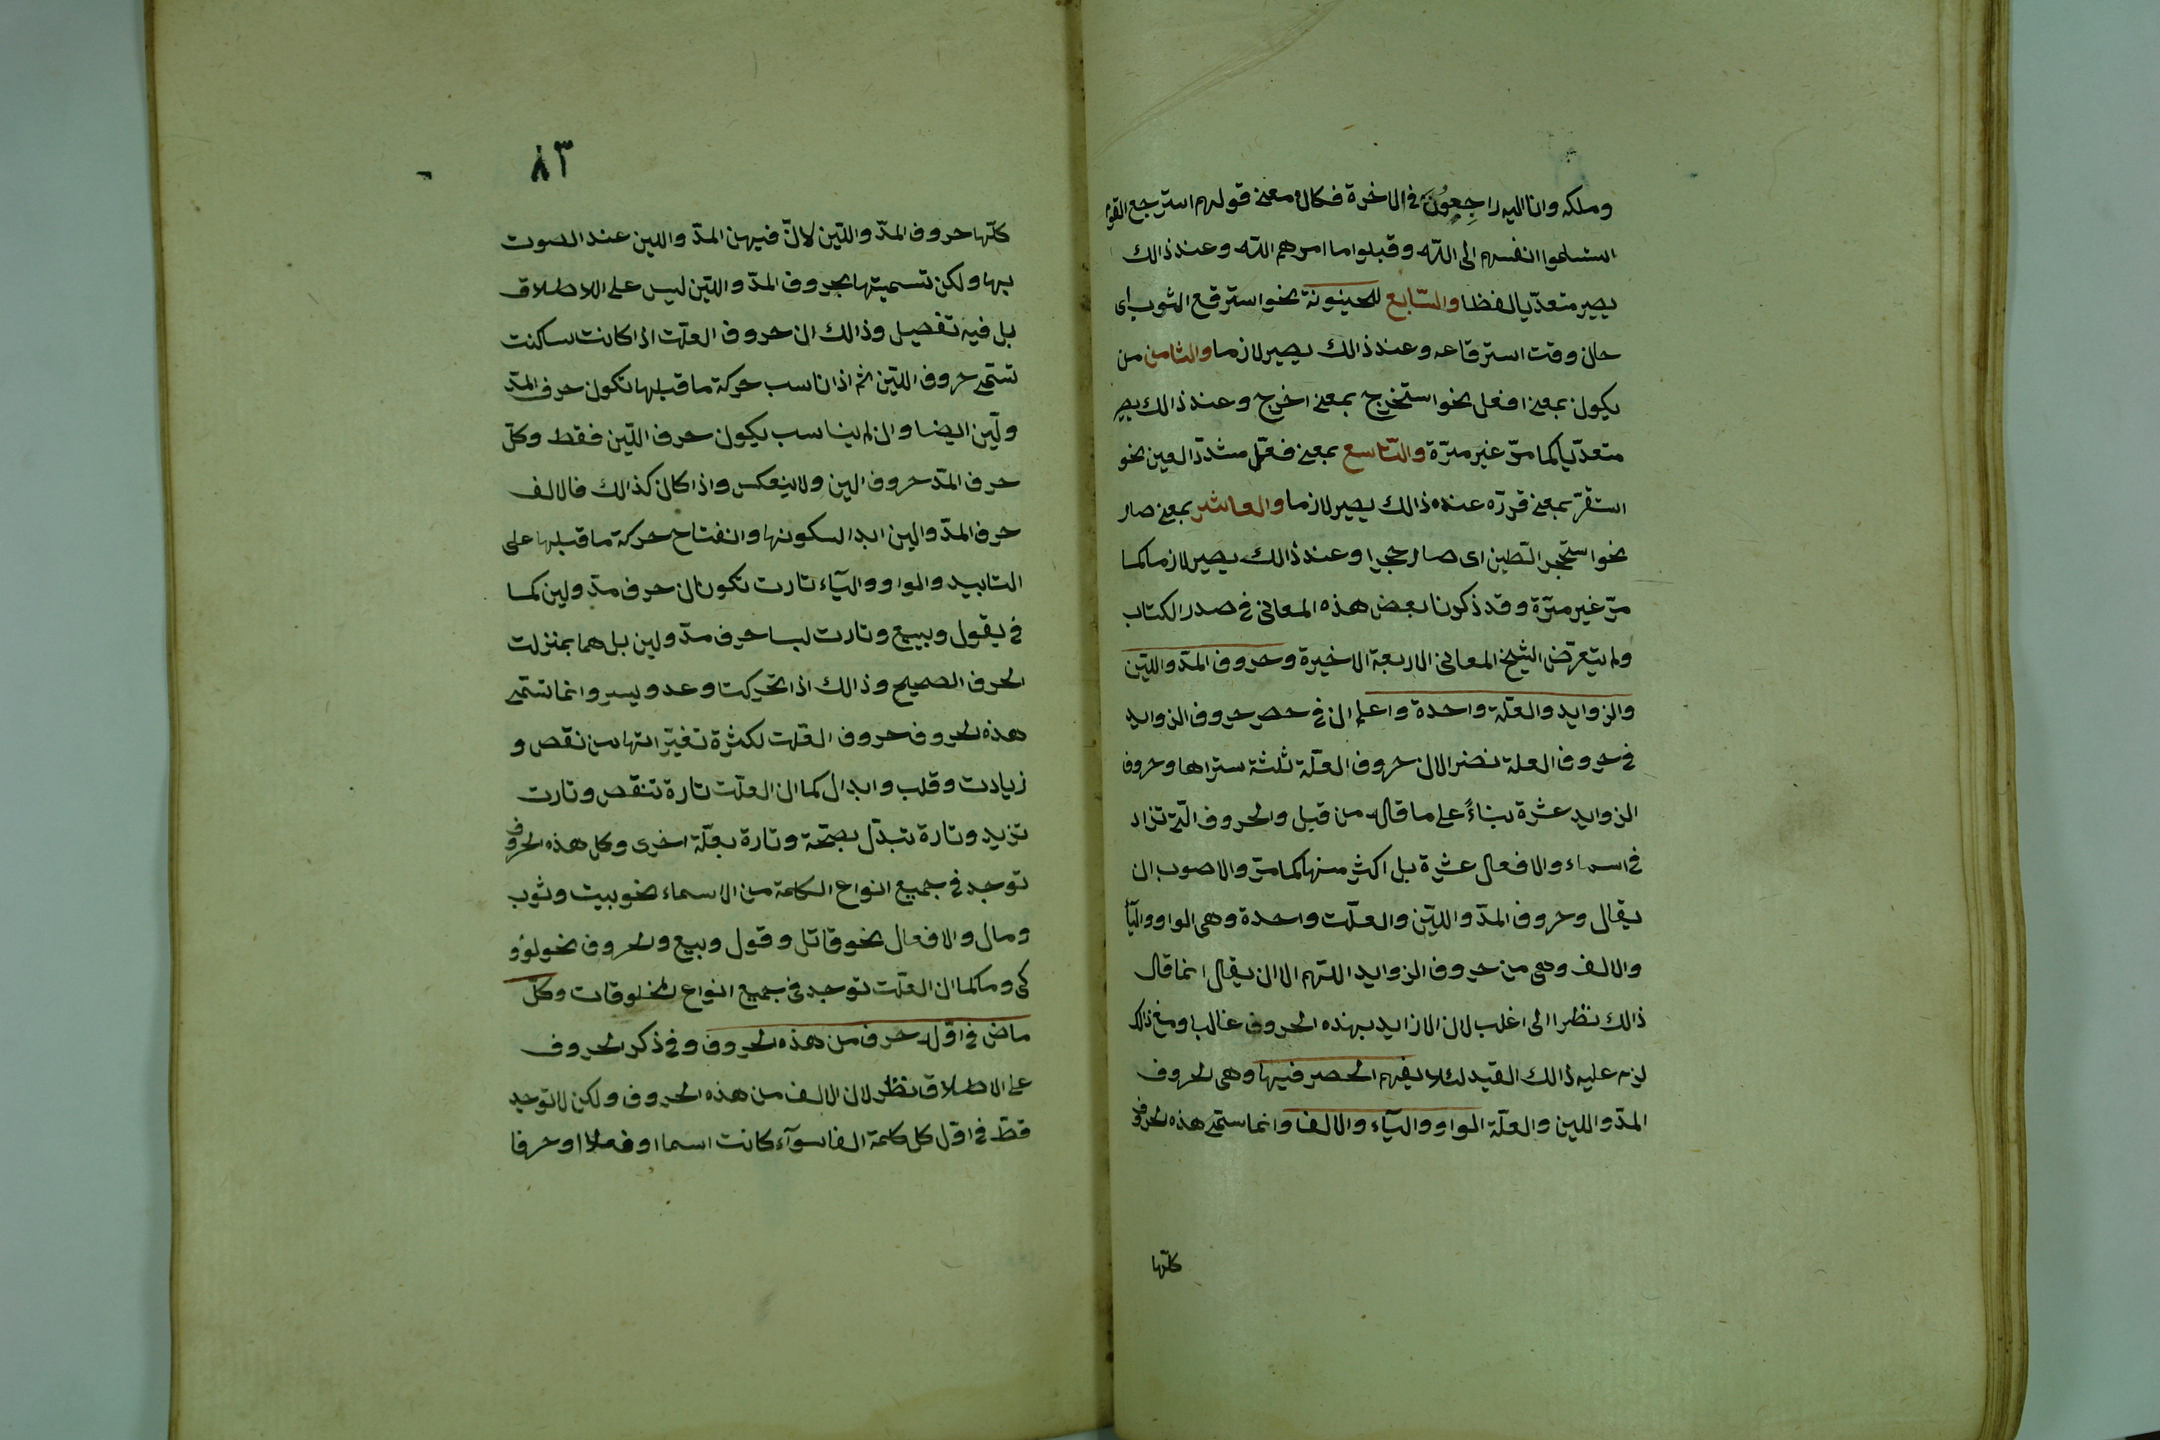 وملكه وانا اليه راجِعِوُنَ في الاخرة فكان معنى قولهم استرجع القوم
استسلموا انفسهم الى اللّه وقبلوا ما امرهم اللّه وعند ذالك
يصير متعدّيا لفظا والسّابع للحينونة نحو استرقع الثوب اى
حان وقت استرقاعه وعند ذالك يصير لازما والثامن من
يكون بمعنى افعل نحو استخرج بمعنى اخرج وعند ذالك يصير
متعدّيا كما مرّ غير مرّة والتّاسع بمعنى فعّل مشدّد العين نحو
استقرّ بمعنى قرّره عنده ذالك يصير لازما والعاشر بمعنى صار
نحو استحجر الطّين اى صار حجرا وعند ذالك يصير لازما كما
مرّ غير مرّة وقد ذكرنا بعض هذه المعانى في صدر الكتاب
ولم يتعرّض الشيخ المعانى الاربعة الاخيرة وحروف المدّ واللّين
والزوايد والعلّة واحدة واعلم ان في حصر حروف الزوايد
في حروف العلة نضر الان حروف العلّة ثلثة ستراها وحروف
الزوايد عشرة بناءً على ما قال من قبل والحروف الّتى تزاد
في اسماء والافعال عشرة بل اكثر منها كما مرّ والاصوب ان
يقال وحروف المدّ واللّين والعلّت واحدة وهى الواو واليآء
والالف وهى من حروف الزوايد اللّهم الا ان يقال انما قال
ذالك نظرا الى اغلب لان الازايد بهذه الحروف غالبا ومع ذالك
لزم عليه ذالك القيد لئلا يفهم الحصر فيها وهى الحروف
المدّ واللين والعلّة الواو واليآء والالف وانما ستمى هذه الحروف
كلّها
٨٣
كلّها حروف المدّ واللّين لانّ فيهن المدّ واللين عند الصوت
بها ولكن تسميتها بحروف المدّ واللّين ليس على الاطلاق
بل فيه تفصيل وذالك ان حروف العلّت اذا كانت ساكنت
تسّمى حروف اللّين ثم اذا ناسب حركة ما قبلها تكون حرف المدّ
ولّين ايضا وان لم يناسب يكون حرف اللّين فقط وكلّ
حرف المدّ حروف الين ولا ينعكس واذا كان كذالك فالالف
حرف المدّ والين ابدا لسكونها وانفتاح حركة ما قبلها على
التابيد والواو واليآء تارت تكونان حرف مدّ ولين كما
في يقول ويبيع وتارت ليسا حرف مدّ ولين بل هما بمنزلت
الحرف الصحيح وذالك اذا تحّركت وعد ويسر وانما تسّمى
هذه الحروف حروف العّلت لكثرة تغيّراتها من نقص و
زيادت وقلب وابدال كما ان العلّت تارة تنقص وتارت
تزيد وتارة تبدّل بصّحة وتارة بعّلة اخرى وكل هذه الحروف
توجد في جميع انواع الكلمة من الاسماء نحو بيت وثوب
ومال والافعال نحو قاتل وقول وبيع والحروف نحو لو و
كى وما كما ان العلّت توجد في جميع انواع المخلوقات وكلّ
ماض في اوّله حرف من هذه الحروف وفي ذكر الحروف
على الاطلاق نظر لان الالف من هذه الحروف ولكن لا توجد
قطّ في اوّل كل كلمة الف اسوآء كانت اسما او فعلا او حرفا